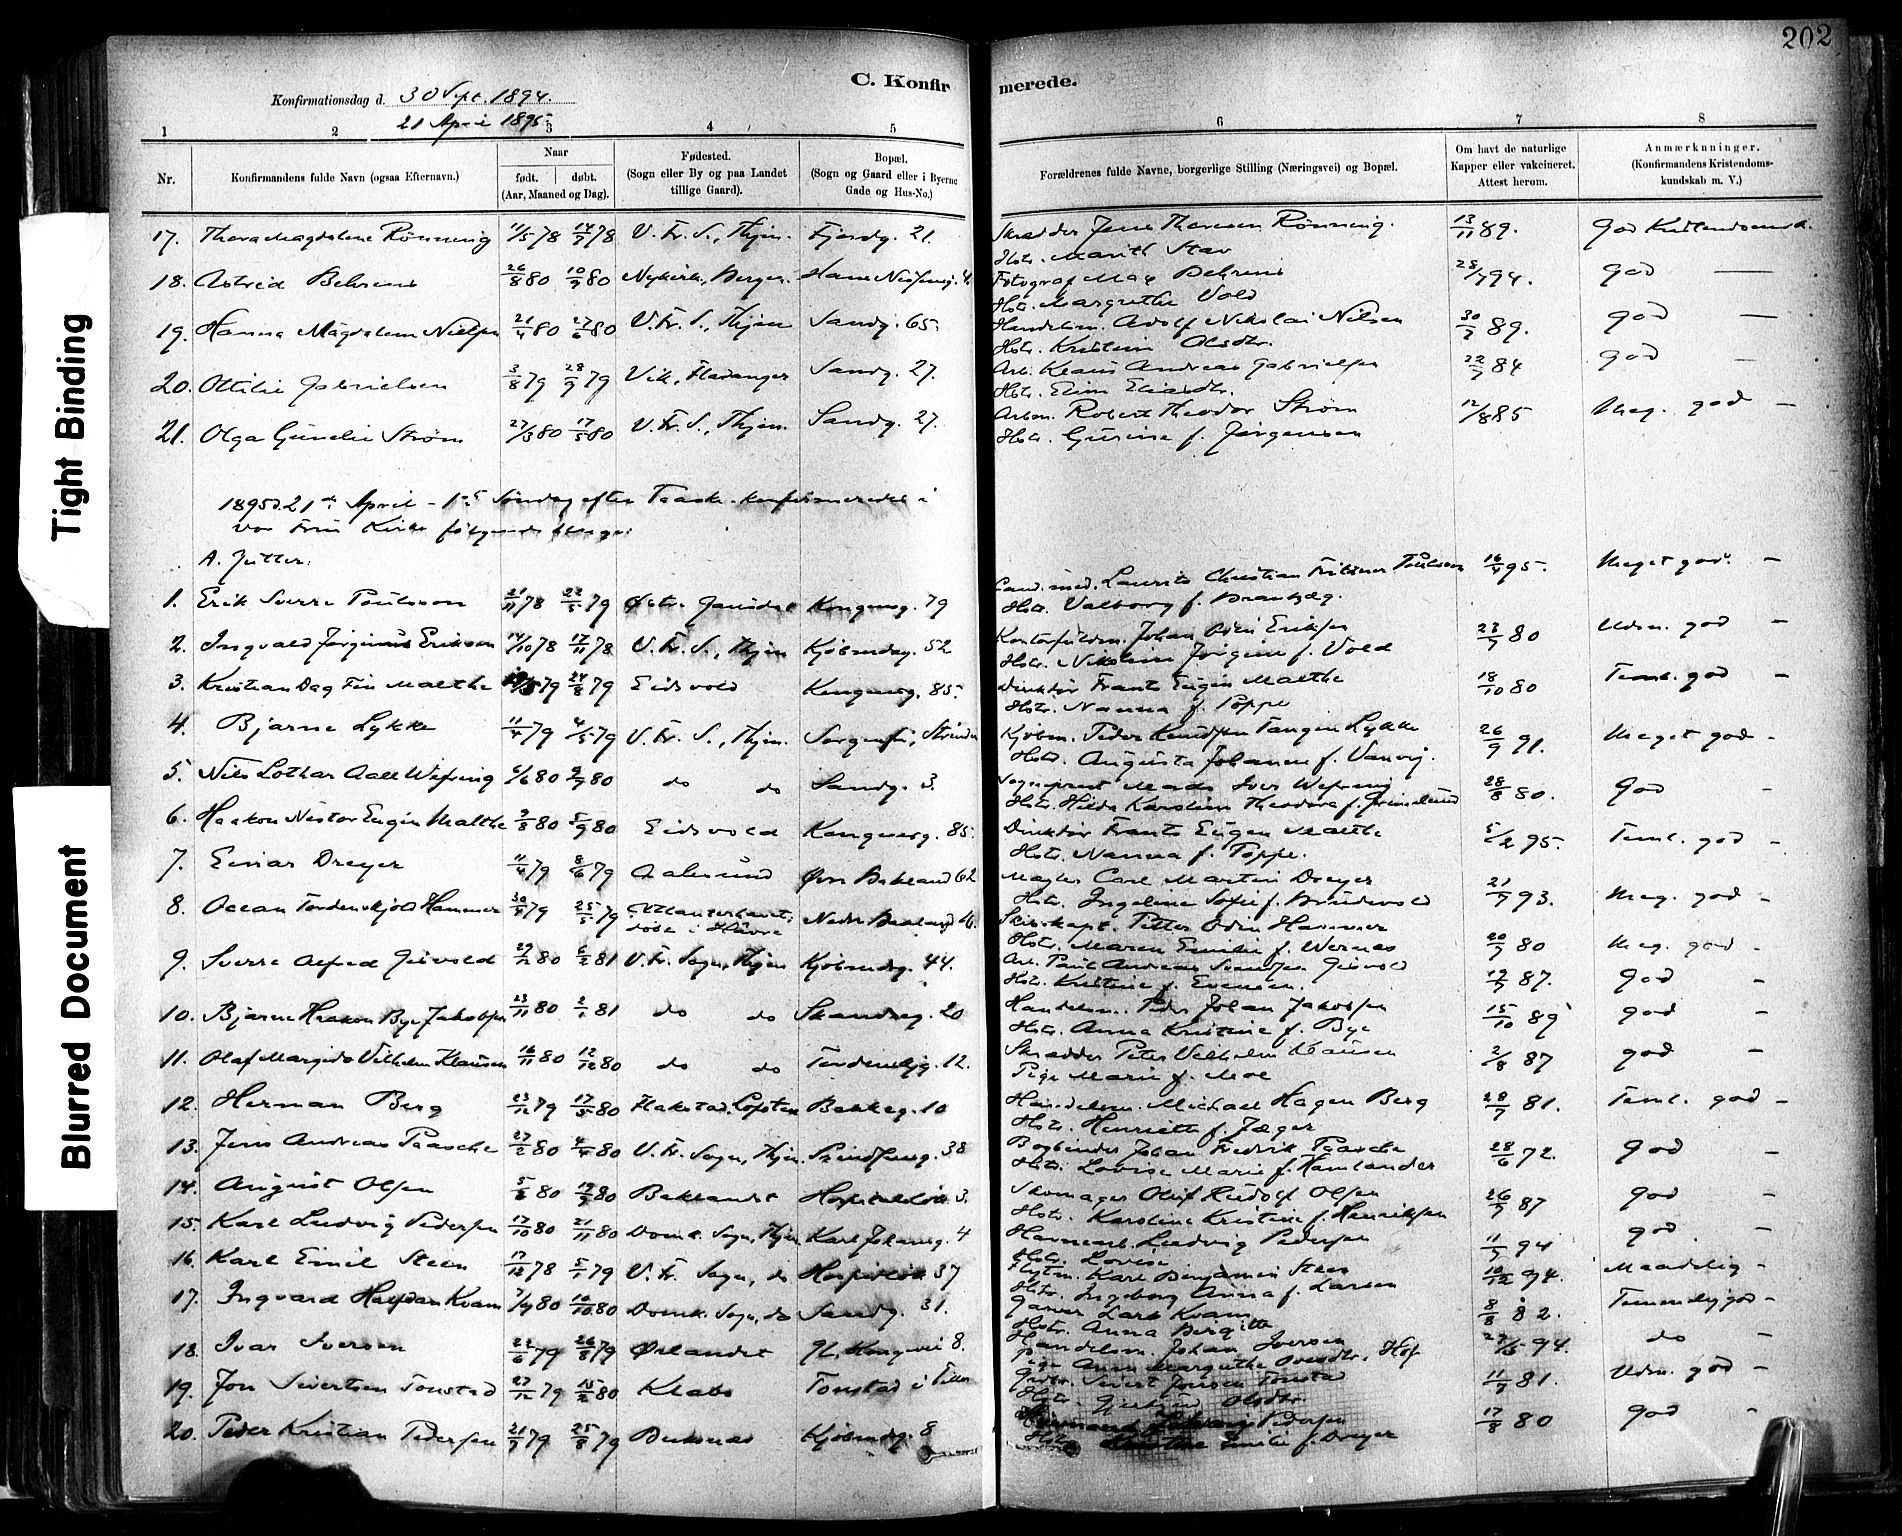 202
C. Konfirmerede.
Konfirmationsdag d. 30 Sept. 1894.
21 April 1895
1 2 3 4 5 6 7 8
Nr.
Konfirmandens fulde Navn (ogsaa Efternavn.)
Naar
født. døbt.
(Aar, Maaned og Dag).
Fødested.
(Sogn eller By og paa Landet
tillige Gaard).
Bopæl.
(Sogn og Gaard eller i Byerne
Gade og Hus-No.)
Forældrenes fulde Navne, borgerlige Stilling (Næringsvei) og Bopæl.
Om havt de naturlige
Kapper eller vakcineret.
Attest herom.
Anmærkninger.
(Konfirmandens Kristendoms-
kundskab m. V.)
17. Thora Magdalene Rönning 11/5 78 14/7 78 V. Fr. S., Thjem. Fjordg. 21. Skrædder Jens Rönning. 13/11 89. God
Hstr. Marith Stav
18. Astrid Behrens 26/8 80 10/9 80 Nykirk, Bergen. Fotograf Max Behrens 28/7 94. God —
Hstr. Margrethe Vold
19. Hanna Magdalene Nielsen 21/4 80 27/6 80 V. Fr. S., Thjem Sandg. 65. Handelsm. Adolf Nikolai Nilsen 30/7 89. God —
Hstr. Kristine Olsdtr.
20. Ottilie Gabrielsen 3/8 79 28/9 79 Vik, Flatanger Sandg. 27. Arb. Klaus Andreas Gabrielsen 22/7 84 God —
Hstr. Elin Eliasdtr.
21. Olga Strøm 27/3 80 17/5 80 V. Fr. S., Thjem. Sandg. 27. Arbm. Robert Theodor Strøm 12/8 85 Meg. god —
Hstr. Gurine f. Jørgensen
1895 d. 21de April - 1ste Søndag efter Paaske konfirmeredes i
Vor Frue Kirke følgende
A. Gutter.
1. Erik Sverre Poulsson 21/11 78 22/5 79 Kongensg. 79 Cand. med. Laurits Christian Poulsson 16/4 95. Meget god. —
Hstr. Valborg f.
2. Ingvald Jørginius Eriksen 14/10 78 17/11 78 V. Fr. S., Thjem Kjöbmdg. 52 Johan Eriksen 23/7 80 Udm. god —
Hstr. Nikoline Jörgine f. Vold
3. Kristian Dag Fin Malthe 79 24/8 79 Eidsvold Kongensg. 85. Direktör Frants Eugen Malthe 18/10 80 Teml. god —
Hstr. Nanna f. Poppe
4. Bjarne Lykke 11/4 79 4/5 79 V. Fr. S., Thjem. Sorgenfri, Strinden Kjöbm. Peder Knudsen Tangen Lykke 26/9 91. Meget god -
Hstr. Augusta Johanne f. Vanvig.
5. Nils Lothar Aall Wefring 6/6 80 9/7 80 do do Sandg. 3. Sogneprest Mads Iver Wefring 28/8 80. God —
Hstr. Hilda Karoline Theodora f. Grimelund
6. Haakon Nestor Eugen Malthe 9/8 80 5/9 80 Eidsvold Kongensg. 85. Direktör Frants Eugen Malthe 5/2 95. Teml. god -
Hstr. Nanna f. Poppe.
7. Einar Dreyer 11/4 79 8/6 79 Aalesund Øvre Bakland 62 Mægler Carl Martin Dreyer 21/7 93. Meg. god -
Hstr. Ingeline Sofie f.
8. Ocean Tordenskjold Hammer 30/4 79 25/5 79 Atlanterhavet, døbt i Havre Nedre Bakland 46. Skibskapt. Petter Odin Hammer 20/7 80 Meg. god -
Hstr. Maren Emilie f. Wernes
9. Sverre Alfred 29/12 80 6/2 81 V. Fr. Sogn, Thjem Kjöbmdg. 44. Arb. Paul Andreas Svendsen 19/7 87. God —
Hstr. Kristine f. Evensen.
10. Bjarne Haakon Bye Jakobsen 23/11 80 2/1 81 do do Skandseg. 20 Handelsm. Peder Johan Jakobsen 15/10 89 god —
Hstr. Anna Kristine f. Bye
11. Olaf Margido Vilhelm Klausen 16/11 80 12/12 80 do do Tordenskjg. 12. Skrædder Peter Vilhelm Klausen 2/8 87 god —
Pige Marie f. Moe
12. Herman Berg 23/12 79 17/5 80 Flakstad, Lofoten Bakkeg. 10 Handelsm. Michael Hagen Berg 28/7 81. Teml. god —
Hstr. Henriette f. Jæger
13. Jens Andreas Paasche 27/2 80 4/4 80 V. Fr. Sogn, Thjem. 38 Bogbinder Johan Fredrik Paasche 28/6 72. God —
Hstr. Lovise Marie f. Hamlander
14. August Olsen 5/8 80 19/9 80 Baklandet 3. Skomager Oluf Rudolf Olsen 26/7 87 God —
Hstr. Karoline Kristine f. Henriksen
15. Karl Ludvig Pedersen 17/10 80 21/11 80 Domk. Sogn, Thjem Karl Johansg. 4 Ludvig Pedersen 11/7 94 God —
Hstr. Lovise
16. Karl Emil Steen 17/12 78 5/1 79 V. Fr. Sogn, do 37 Flytm. Karl Benjamin Steen 10/12 94. Maadelig -
Hstr. Ingeborg Anna f. Larsen
17. Ingvard Halfdan Kvam 7/9 80 10/10 80 Domk. Sogn, do Sandg. 31. Garver Lars Kvam 8/8 82. Temmelig god -
Hstr. Anna Bergitte
18. Ivar Iversen 22/6 79 26/8 79 Ørlandet Gl. Kongevei 8. Handelsm. Johan Iversen 94. do —
Pige Anna Margrethe
19. Jon Sivertsen Tonstad 27/12 79 15/2 80 Klæbo Tonstad i Tiller Sivert Jonsen Tonstad 11/7 81. Udm. god —
Hstr. Olsdtr.
20. Peder Kristian Pedersen 21/7 79 25/8 79 Buksnes Kjöbmdg. 8 Pedersen 17/8 80 god -
Hstr. Emilie f. Dreyer
Tight Binding
Blurred Document